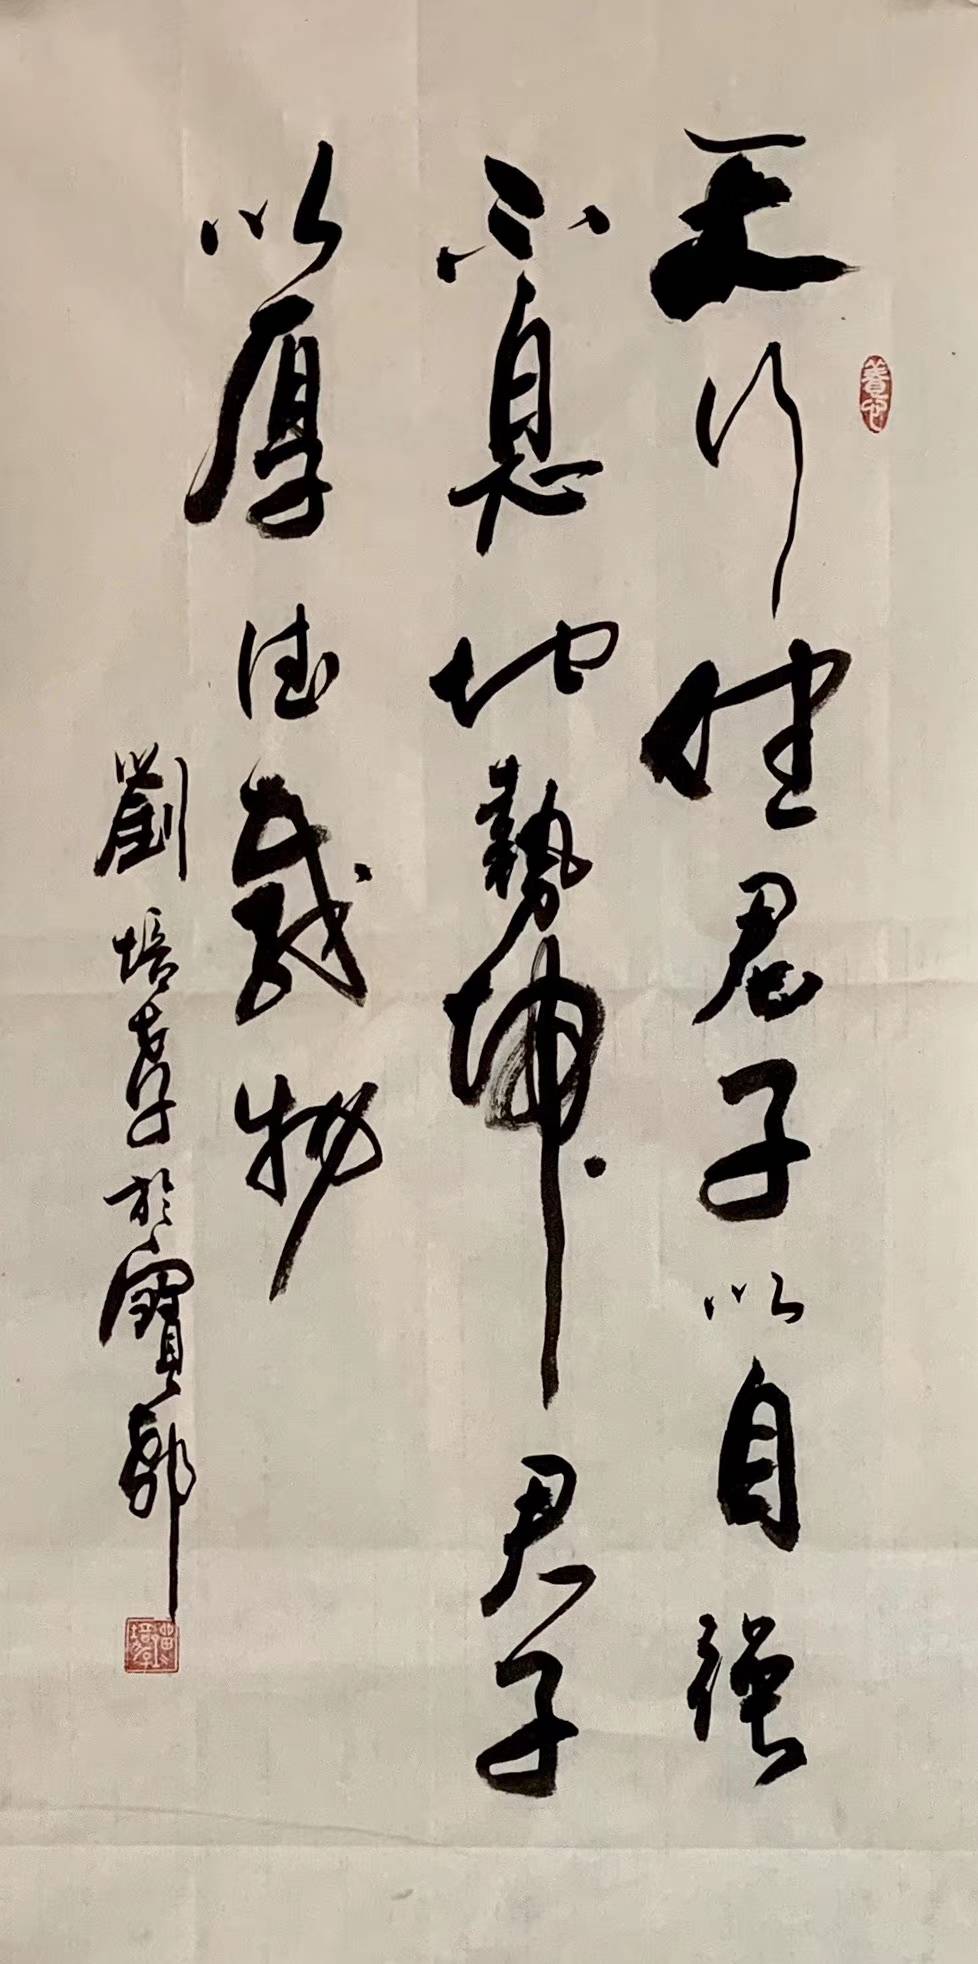 天行健君子以自強
不息地勢坤君子
以厚德載物
劉培孝於寶郭